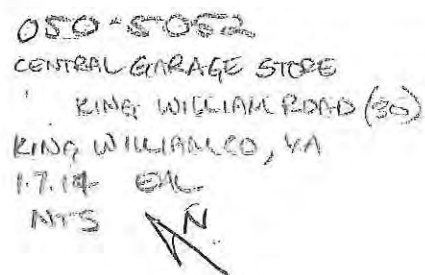 050-5052
CENTRAL GARAGE STORE
KING WILLIAM ROAD (30)
KING WILLIAM CO, VA
1.7.14 EAL
NTS N